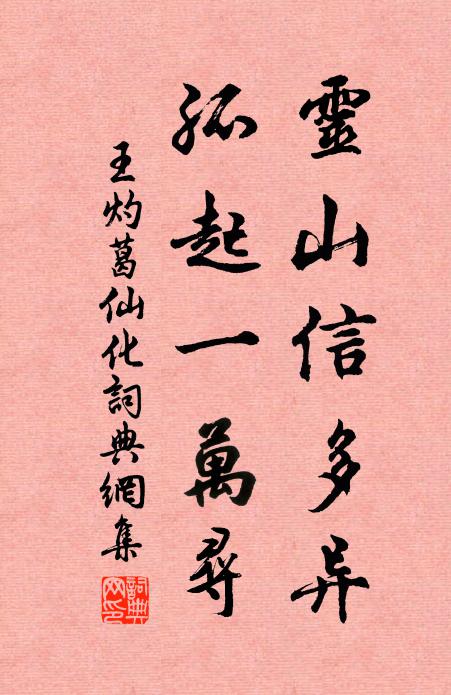 靈山信多异
孤起一萬尋
王灼葛仙化詞典網集
詞典網印